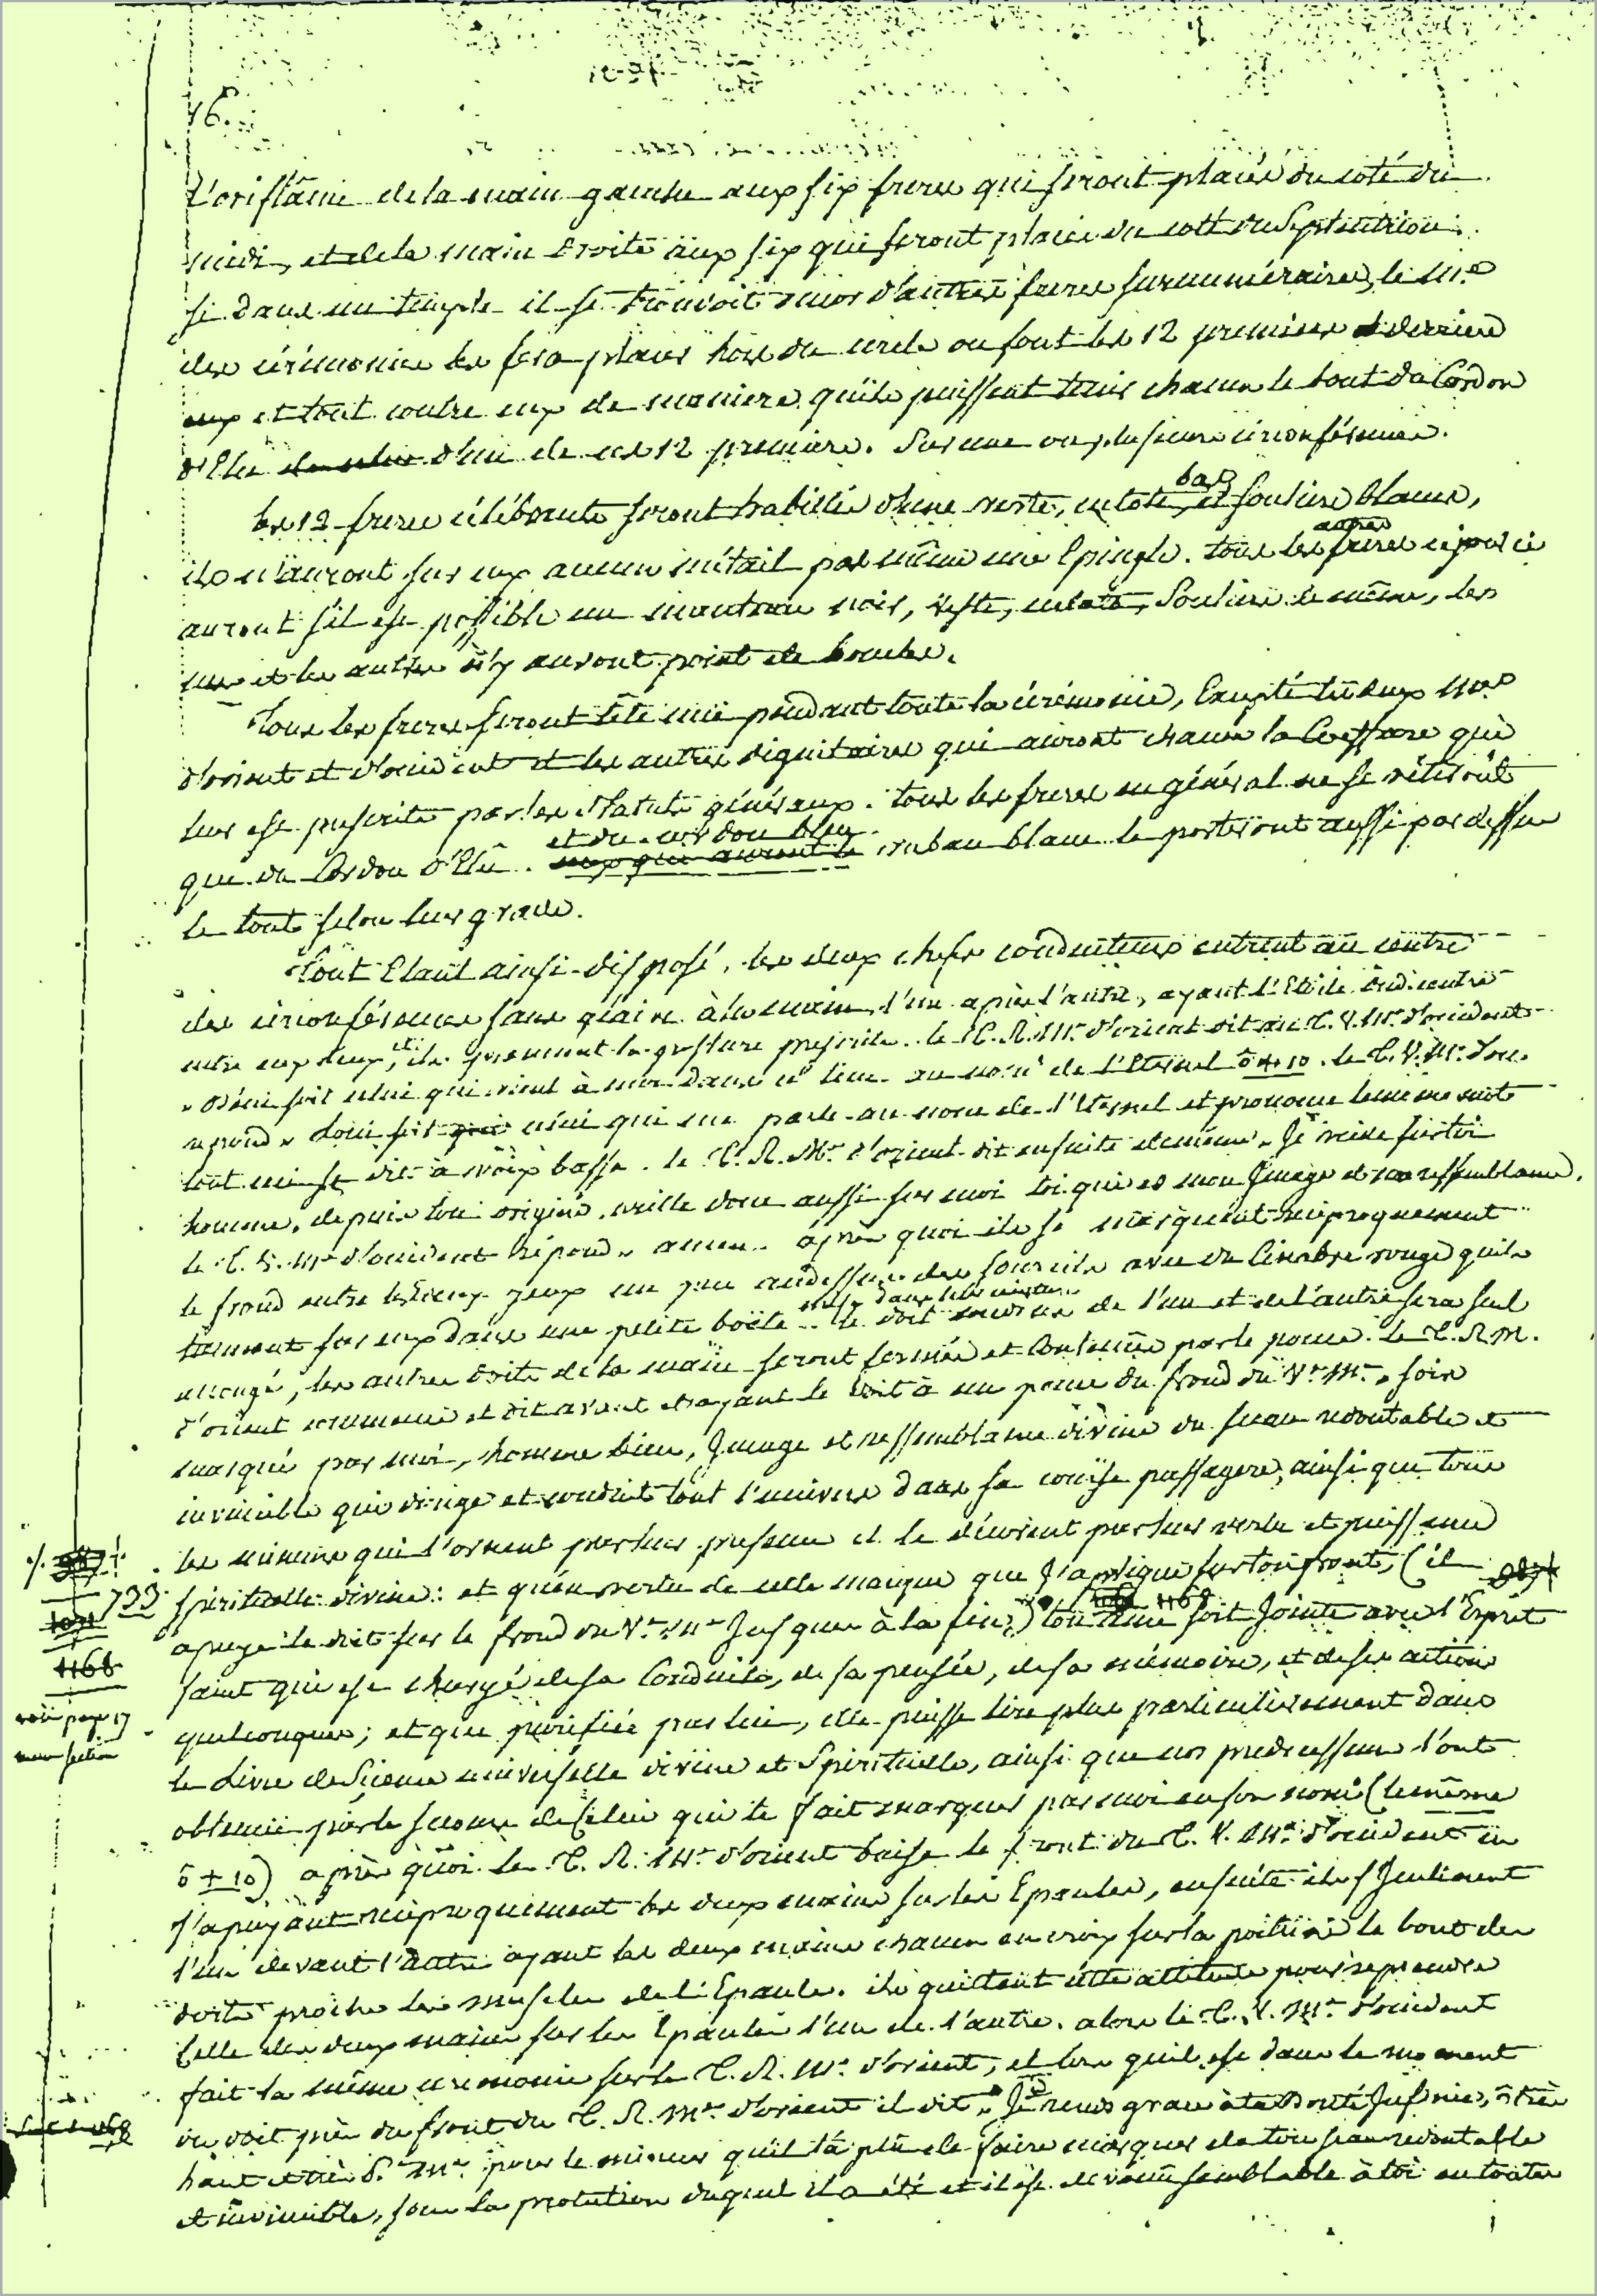 16.
L'oriflâme de la main gauche aux six freres qui seront placés du coté du
midi, et de la main droite aux six qui seront placés du coté du Septentrion.
si dans un temple il se trouvoit encor d'autres freres surnuméraires, le M.e
des cérémonies les fera placer hors du cercle ou sont les 12 premiers derriere
eux et tout contre eux de maniere qu'ils puissent tenir chacun le bout du Cordon
d'Elu d'un de ces 12 premiers. sur une ou plusieurs circonférences.
les 12 freres célébrants seront habillés d'une veste, culote, bas et souliers blancs,
ils n'auront sur eux aucun métail pas même une Epingle. tous les autres freres
auront s'il est possible un manteau noir, veste, culote, souliers de même, les
uns et les autres n'y auront point de boucles.
Tous les freres seront tête nue pendant toute la cérémonie, Excepté les deux M.es
d'orient et d'occident et les autres dignitaires qui auront chacun la Coeffure qui
leur est prescrite par les Statuts généraux. tous les freres en général ne se vêtiront
que du Cordon d'Elû. et du cordon bleu ruban blanc le porteront aussi par dessus
le tout selon leur grade.
Tout Etant ainsi disposé, les deux chefs conducteurs entrent au centre
des circonférences sans glaive à la main, l'un après l'autre, ayant l'Etoile du centre
entre eux deux, et ils prennent la posture prescrite. le T. R. M.e d'orient dit au T. V. M.e d'occident
" béni soit celui qui vient à moi dans ce lieu au nom de l'Eternel ō + 10. le T. V. M.e d'occ.
repond " béni soit celui qui me parle au nom de l'Eternel et prononce le même mot
tout ceci se dit à voix basse. le T. R. M.e d'orient dit ensuite de même " Je veille sur toi
homme, depuis ton origine, veille donc aussi sur moi toi qui es mon Image et ma ressemblance.
le T. V. M.e d'occident répond " amen " après quoi ils se marquent réciproquement
le frond entre les deux yeux un peu audessus des sourcils avec du Cinabre rouge qu'ils
tiennent sur eux dans une petite boëte le doit de l'un et de l'autre sera seul
allongé, les autres doits de la main seront fermés et contenus par le pouce. le T. R. M.
d'orient commence et dit avant et ayant le doit à un pouce du frond du V.e M.e " sois
marqué par moi, homme dieu, Image et ressemblance divine du sceau redoutable et
invincible qui dirige et conduit tout l'univers dans sa course passagere, ainsi que tous
les mineurs qui l'ornent par leur présence et le décorent par leur verbe et puissance
Spirituelle divine : et qu'en vertu de cette marque que J'applique sur ton front, (il
apuye le doit sur le frond du V.e M.e Jusques à la fin) ton ame soit Jointe avec l'Esprit
Saint qui est chargé de sa Conduite, de sa pensée, de sa mémoire, et de ses actions
quelconques ; et que purifiée par lui, elle puisse lire plus particulierement dans
le Livre de Science universelle divine et Spirituelle, ainsi que nos predecesseurs l'ont
obtenu par le secours de Celui qui te fait marquer par moi en son nom (le même
ō + 10) après quoi le T. R. M.e d'orient baise le front du T. V. M.e d'occident en
s'apuyant réciproquement les deux mains sur les Epaules, ensuite ils s'Inclinent
l'un devant l'autre ayant les deux mains chacun en croix sur la poitrine le bout des
doits proche les muscles de l'Epaule. ils quittent cette attitude pour reprendre
Celle des deux mains sur les Epaules l'un de l'autre. alors le T. V. M.e d'occident
fait la même ceremonie sur le T. R. M.e d'orient, et lors qu'il est dans le moment
du doit près du front du T. R. M.e d'orient il dit " Je rends grace à ta bonté Infinie, ô très
haut et très P. M.e pour le mineur qu'il t'a plû de faire marquer de ton sceau redoutable
et invincible, sous la protection duquel il a été et il est devenu semblable à toi en toutes
733
1168
1168
voir page 17